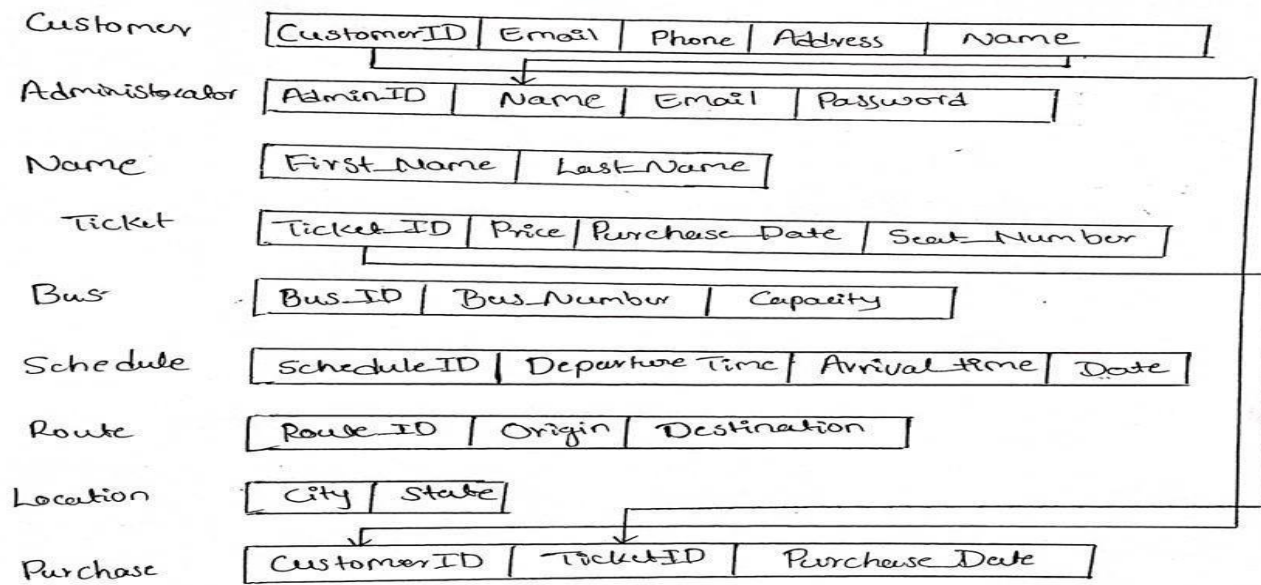 Customer CustomerID Email Phone Address Name
Administrator AdminID Name Email Password
Name First_Name Last_Name
Ticket Ticket_ID Price Purchase_Date Seat_Number
Bus Bus_ID Bus_Number Capacity
Schedule ScheduleID Departure Time Arrival time Date
Route Route_ID Origin Destination
Location City State
Purchase CustomerID TicketID Purchase_Date